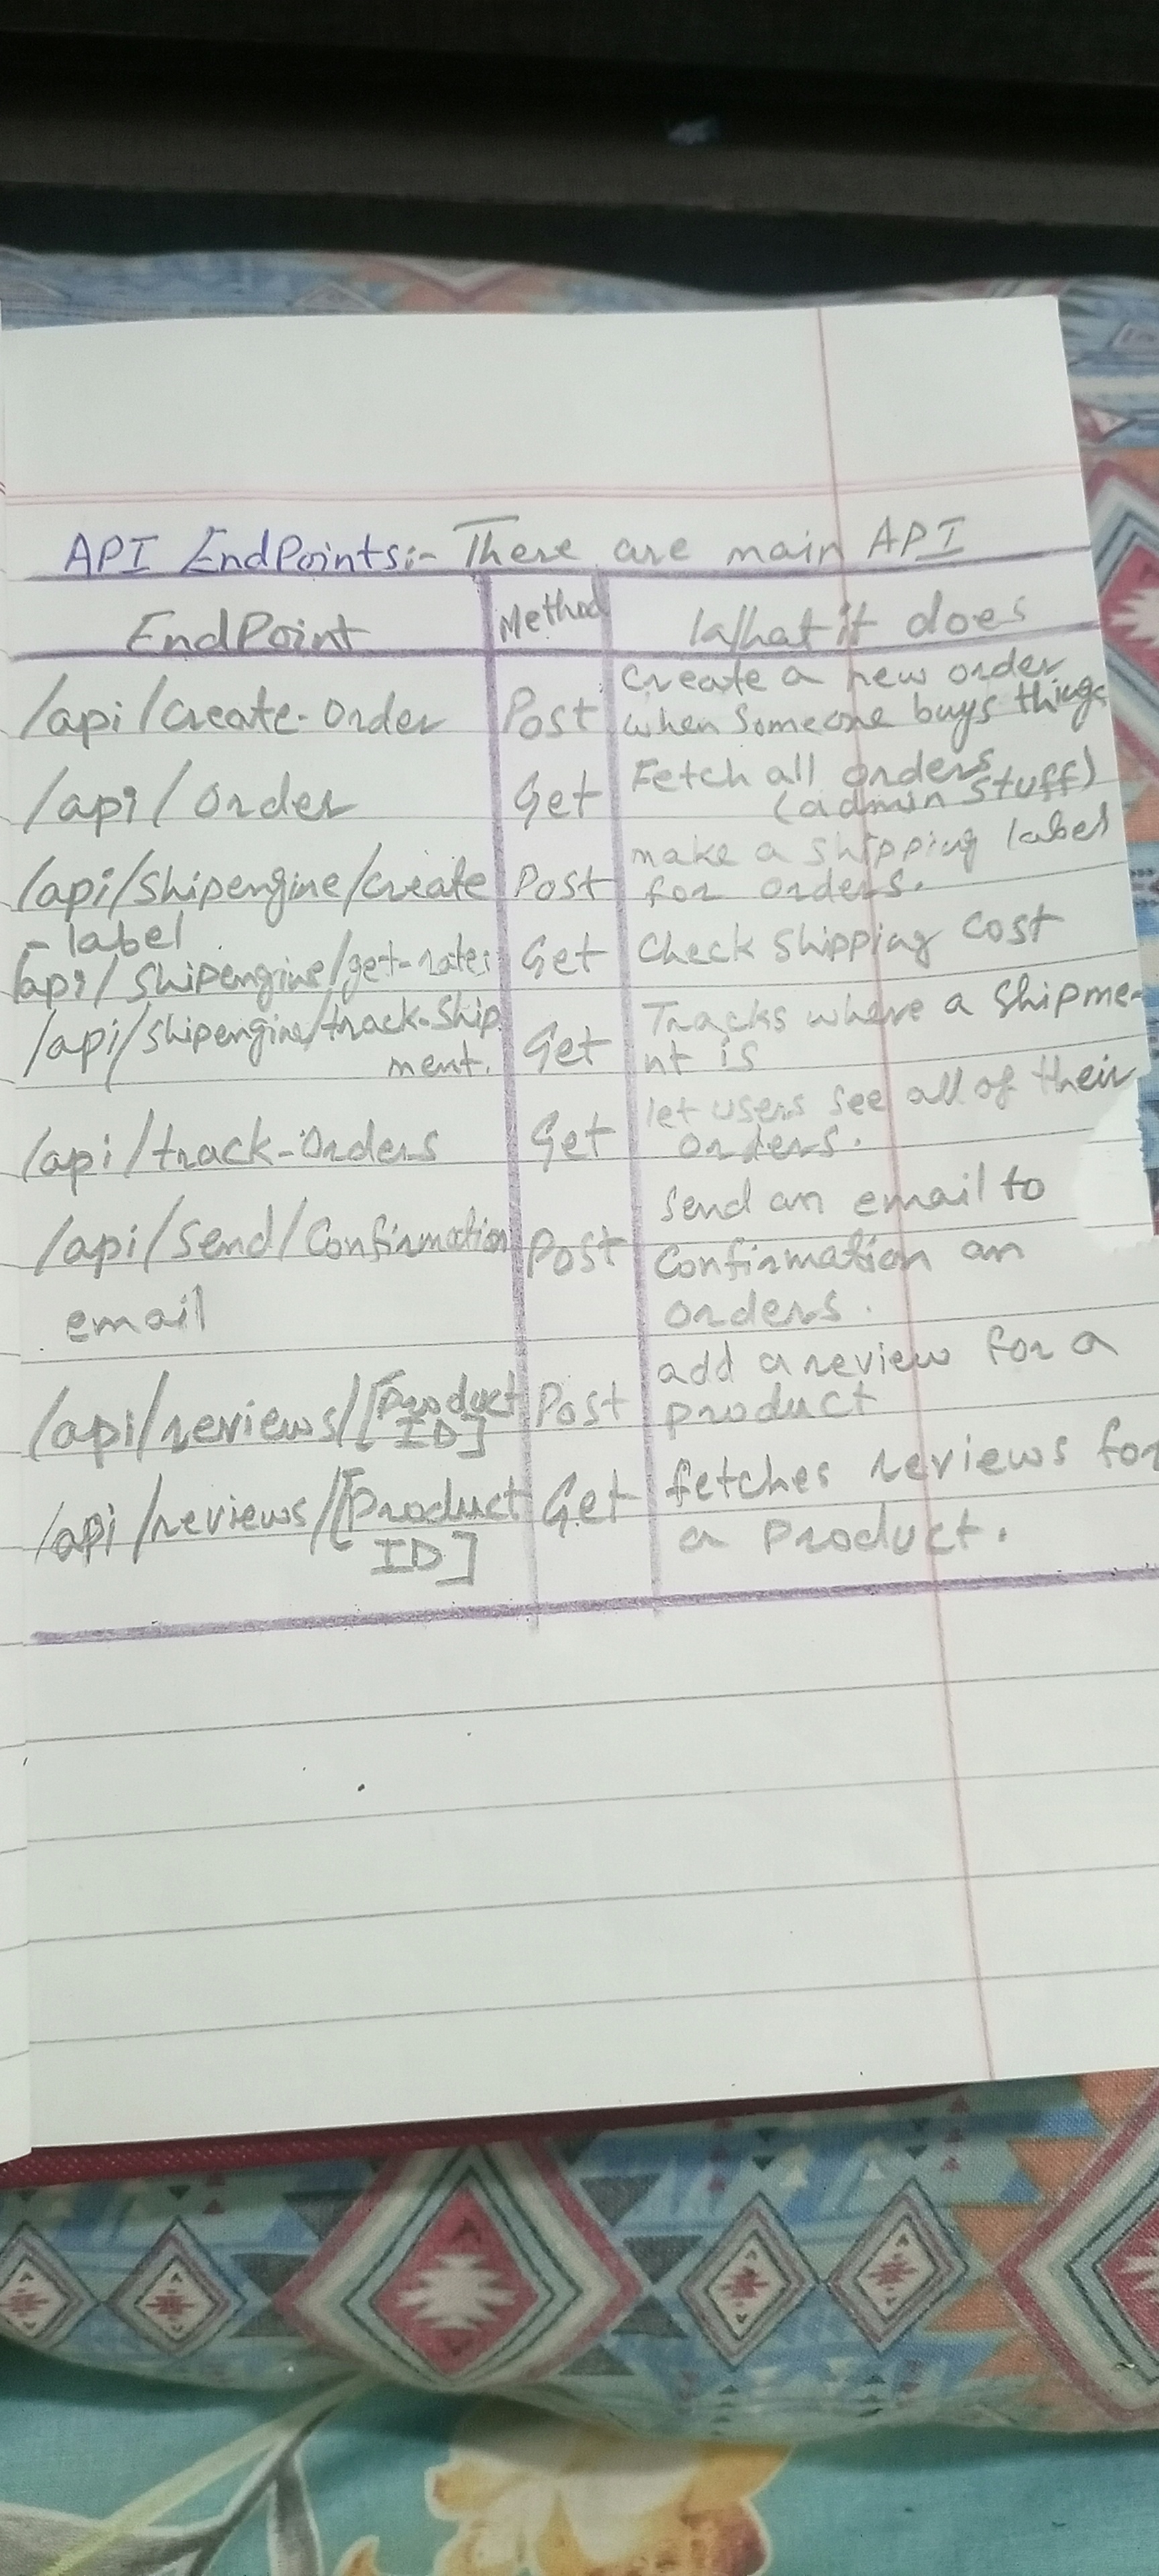 API EndPoints:- There are main API
EndPoint Method What it does
/api/create-Order Post Create a new order
when Someone buys things
/api/order Get Fetch all orders
(admin stuff)
/api/shipengine/create Post make a shipping label
-label for orders.
/api/shipengine/get-rates Get Check Shipping Cost
/api/shipengine/track-Ship Get Tracks where a Shipme-
ment. nt is
/api/track-Orders Get let users see all of their
orders.
/api/Send/Confirmation Post Send an email to
email Confirmation an
orders.
/api/reviews/[Product Post add a review for a
ID] product
/api/reviews/[Product Get fetches reviews for
ID] a Product.